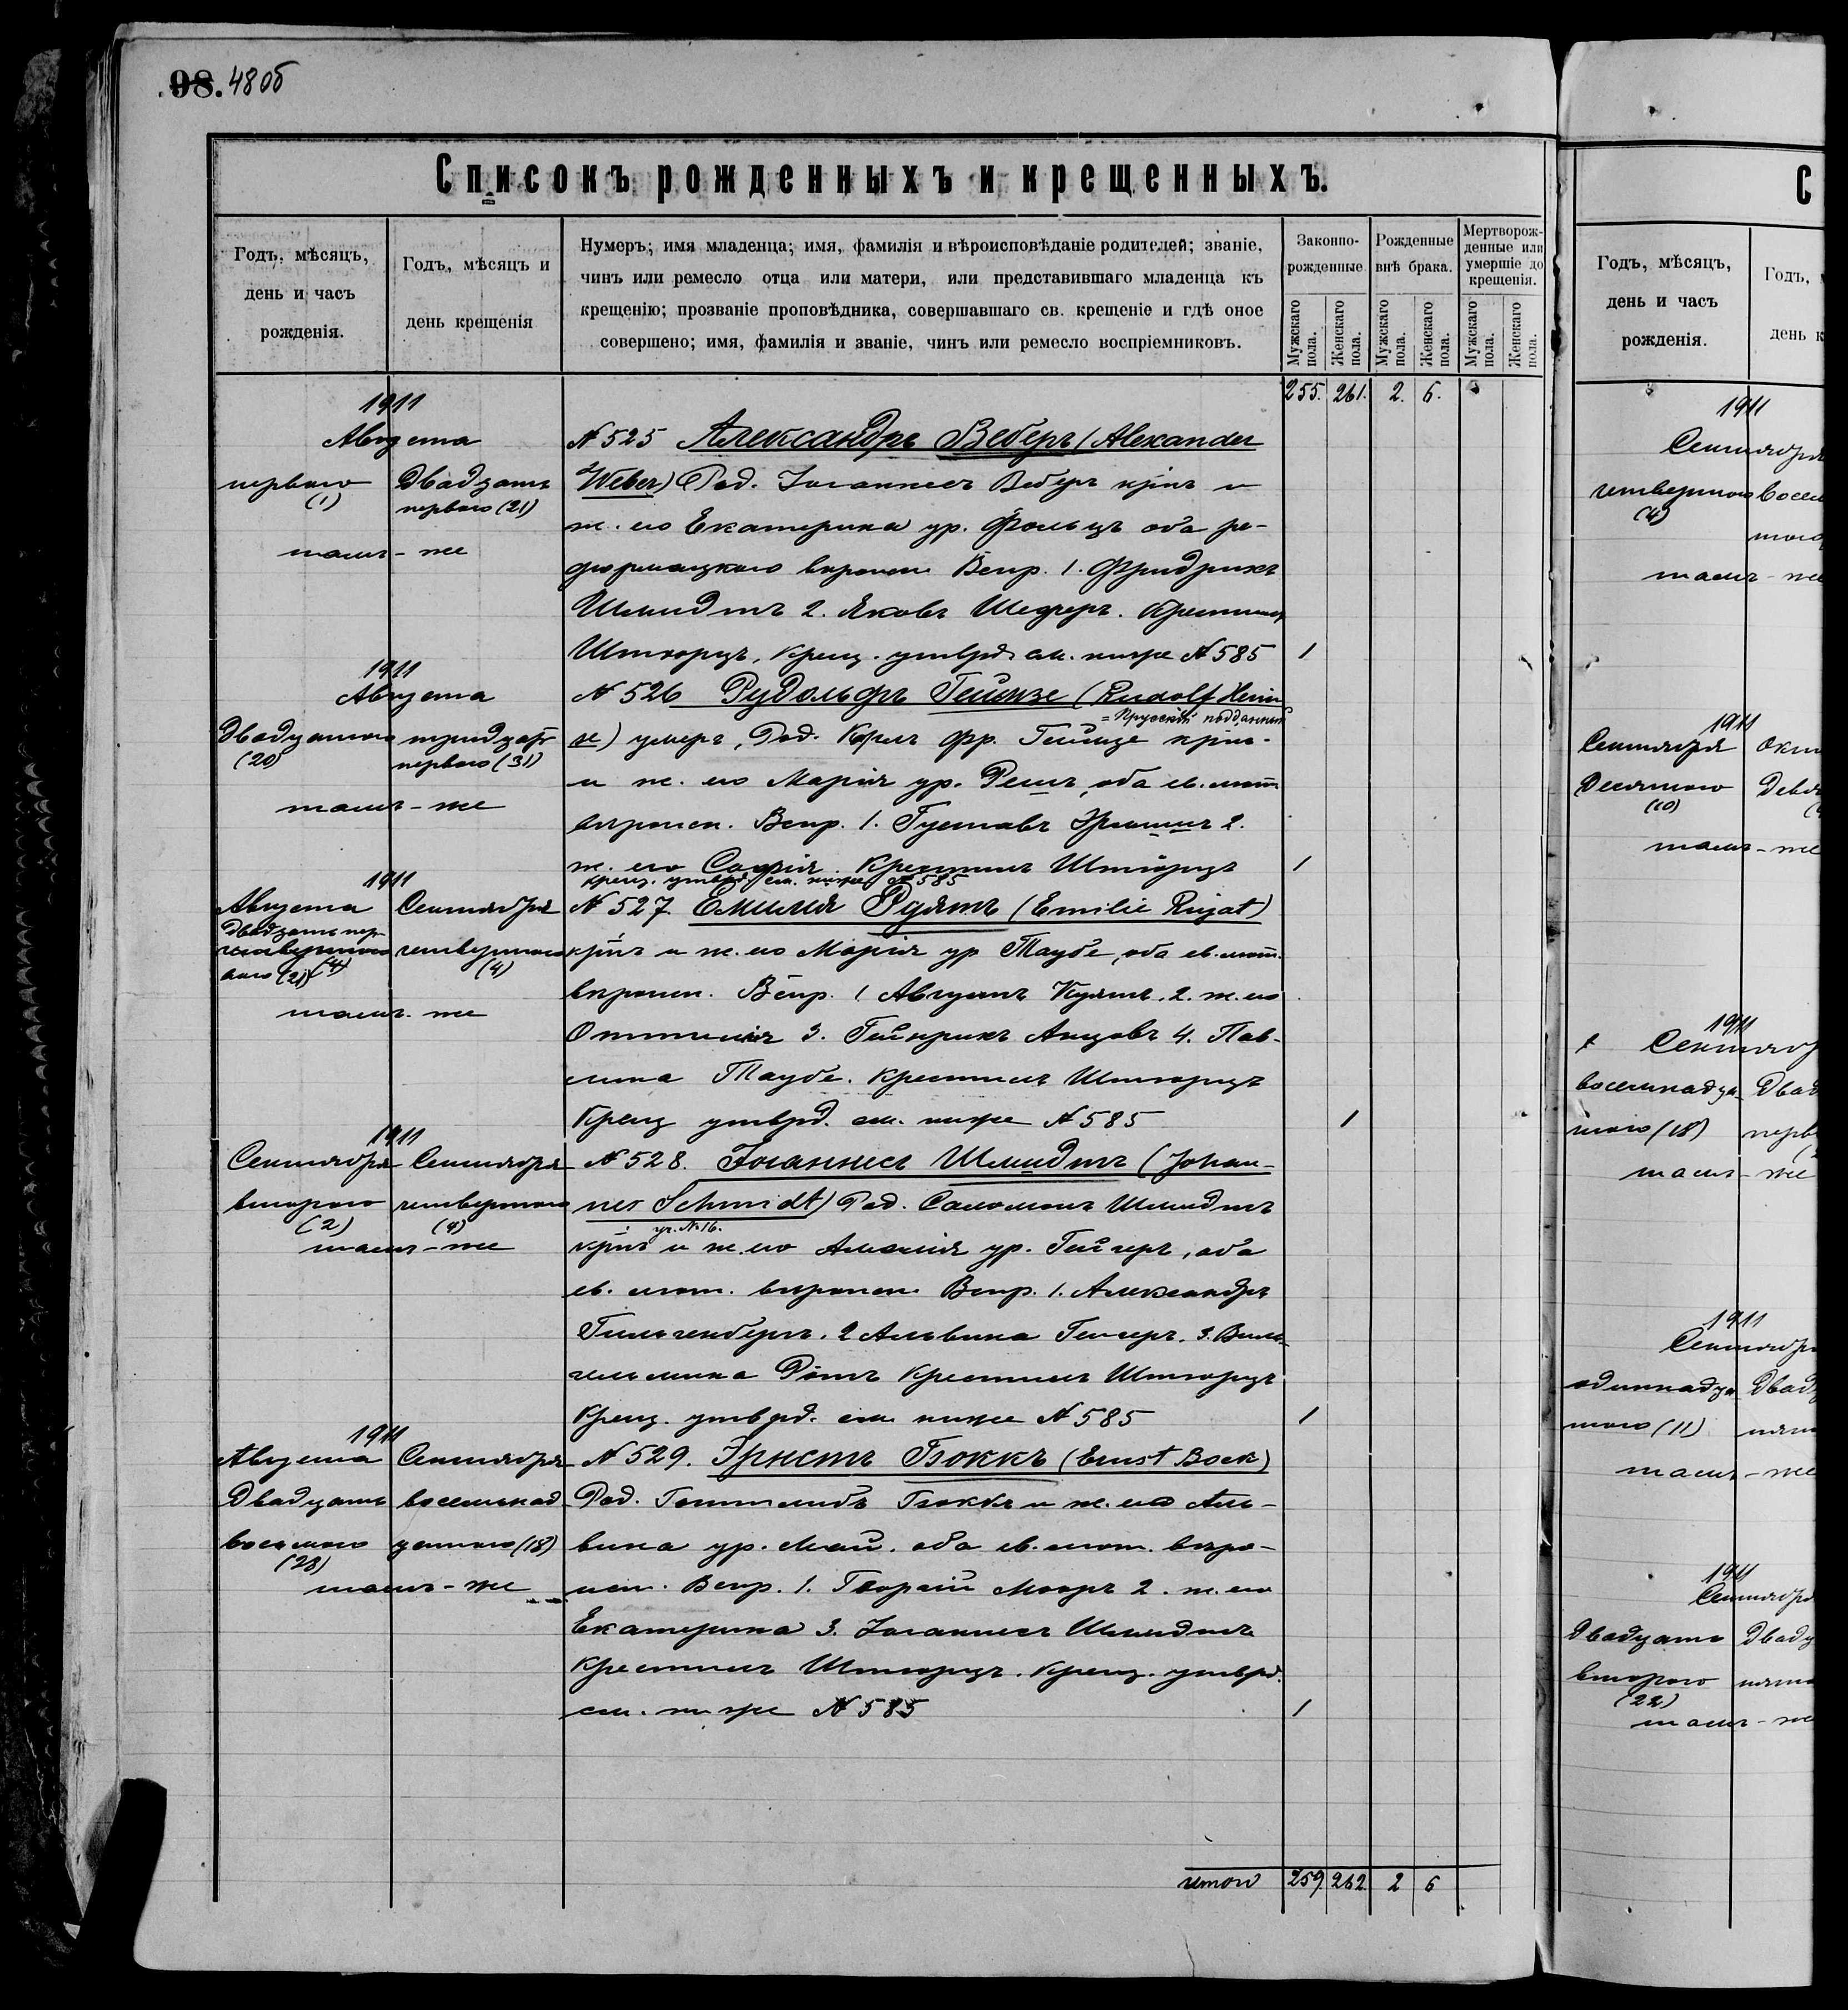 98. 48 об
Списокъ рожденныхъ и крещенныхъ.
Годъ, мѣсяцъ,
день и часъ
рожденія.
Годъ, мѣсяцъ и
день крещенія
Нумеръ; имя младенца; имя, фамилія и вѣроисповѣданіе родителей; званіе,
чинъ или ремесло отца или матери, или представившаго младенца къ
крещенію; прозваніе проповѣдника, совершавшаго св. крещеніе и гдѣ оное
совершено; имя, фамилія и званіе, чинъ или ремесло воспріемниковъ.
Законно-
рожденные
Рожденные
внѣ брака.
Мертворож-
денные или
умершіе до
крещенія.
Мужскаго пола.
Женскаго пола.
Мужскаго пола.
Женскаго пола.
Мужскаго пола.
Женскаго пола.
255. 261. 2. 6.
1911
Августа
перваго (1)
Двадцать перваго (21)
тамъ-же
№ 525 Александръ Веберъ (Alexander
Weber) Род. Іоганнесъ Веберъ крнъ и
ж. его Екатерина ур. Фольцъ оба ре-
форматскаго вѣроисп. Вспр. 1. Фридрихъ
Шмидтъ 2. Яковъ Шефферъ. Крестилъ
Штюрцъ, Крещ. утврд. см. ниже № 585 1
1911
Августа
Двадцатаго (20)
тридцать перваго (31)
тамъ-же
№ 526 Рудольфъ Гейнзе (Rudolf Hein
= Прусскій подданный
ze) умеръ, Род. Карлъ Фр. Гейнзе крнъ.
и ж. его Марія ур. оба ев. лют.
вѣроисп. Вспр. 1. Густавъ 2.
ж. его Софія. Крестилъ Штюрцъ 1
крещ. утврд. см. ниже № 585
1911
Августа
Двадцать пер-
четвертаго (4)
ваго (21)
Сентября
четвертаго (4)
тамъ-же
№ 527. Емилія Руятъ (Emilie Rujat)
крнъ и ж. его Марія ур Таубе, оба ев. лют.
вѣроисп. Вспр. 1 Августъ 2. ж. его
Оттилія 3. Гейнрихъ 4. Пав-
лина Таубе. Крестилъ Штюрцъ
Крещ утврд. см. ниже № 585 1
1911
Сентября
втораго (2)
Сентября
четвертаго (4)
тамъ-же
№ 528. Іоганнесъ Шмидтъ (Johan-
nes Schmidt) Род. Саломонъ Шмидтъ
уч. № 16.
крнъ и ж. его Амалія ур. Гейгеръ, оба
ев. лют. вѣроисп. Вспр. 1. Александръ
Гильгенбергъ. 2 Альвина Гейгеръ. 3. Виль-
гельмина Ротъ Крестилъ Штюрцъ
Крещ. утврд. см ниже № 585 1
1911
Августа
Двадцать
восьмого (28)
Сентября
восемьнад
цатаго (18)
тамъ-же
№ 529. Эрнстъ Боккъ (Ernst Bock)
Род. Готтлибъ Боккъ и ж. его Аль-
вина ур. Май. оба ев. лют. вѣро-
исп. Вспр. 1. Георгій Мооръ 2. ж. его
Екатерина 3. Іоганнесъ Шмидтъ
Крестилъ Штюрцъ. Крещ. утврд.
см. ниже № 585 1
итого 259. 262. 2 6
С
Годъ, мѣсяцъ,
день и часъ
рожденія.
Годъ,
день к
1911
Сентября
четвертаго (4)
тамъ-же
1911
Сентября
Десятаго (10)
тамъ-же
1911
восемнадца-
таго (18)
тамъ-же
1911
одиннадца
таго (11)
тамъ-же
1911
Сентября
Двадцать
втораго (22)
тамъ-же